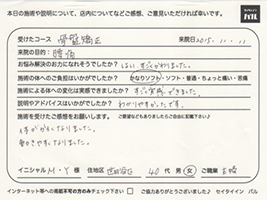 本日の施術や説明について、店内についてなどご感想、ご意見いただければ幸いです。
受けたコース 骨盤矯正 来院日 2015. 11. 11
来院の目的: 腰痛
お悩み解決のお力になれそうでしたか? はい、すごくかわりました。
施術の体へのご負担はいかがでしたか? かなりソフト・ソフト・普通・ちょっと痛い・苦痛
施術による体への変化は実感できましたか? すごく実感できました。
説明やアドバイスはいかがでしたか? わかりやすかったです。
施術を受けたご感想をお願いします。
体がかるくなりました。
動きやすくなりました。
イニシャル M・Y 様 お住地区 40 代 男・女 ご職業 主婦
インターネット等への掲載不可の方のみチェック下さい ご協力ありがとうございました♪ セイタイイン バル